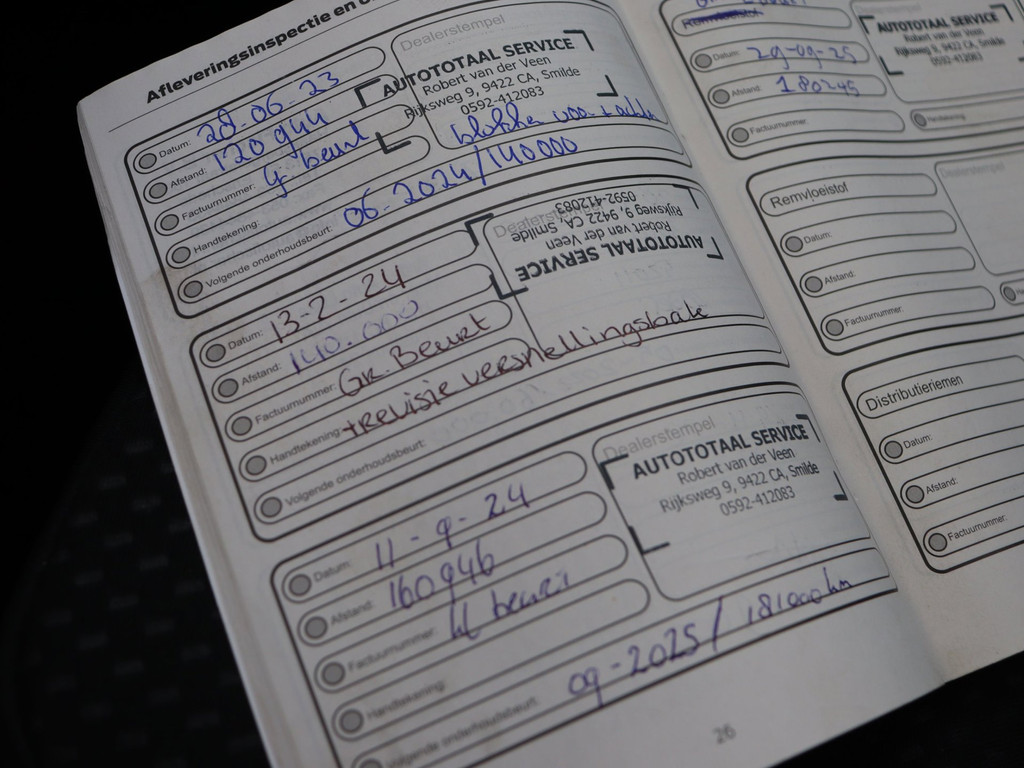 Afleveringsinspectie en o
Dealerstempel
Datum: 28.06.23
Afstand: 120944
Factuurnummer: gr beurt
Handtekening:
Volgende onderhoudsbeurt: 06-2024/140000
AUTOTOTAAL SERVICE
Robert van der Veen
Rijksweg 9, 9422 CA, Smilde
0592-412083
Dealerstempel
Datum: 13-2-24
Afstand: 140.000
Factuurnummer: GR. Beurt
Handtekening: + revisie versnellingsbak
Volgende onderhoudsbeurt:
AUTOTOTAAL SERVICE
Robert van der Veen
Rijksweg 9, 9422 CA, Smilde
0592-412083
Dealerstempel
Datum: 11-9-24
Afstand: 160946
Factuurnummer: kl beurt
Handtekening:
Volgende onderhoudsbeurt: 09-2025/181000km
AUTOTOTAAL SERVICE
Robert van der Veen
Rijksweg 9, 9422 CA, Smilde
0592-412083
26
Remvloeistof
Datum: 29-09-25
Afstand: 180245
Factuurnummer:
Handtekening:
AUTOTOTAAL SERVICE
Robert van der Veen
Rijksweg 9, 9422 CA, Smilde
0592-412083
Remvloeistof
Dealerstempel
Datum:
Afstand:
Factuurnummer:
Distributieriemen
Datum:
Afstand:
Factuurnummer: